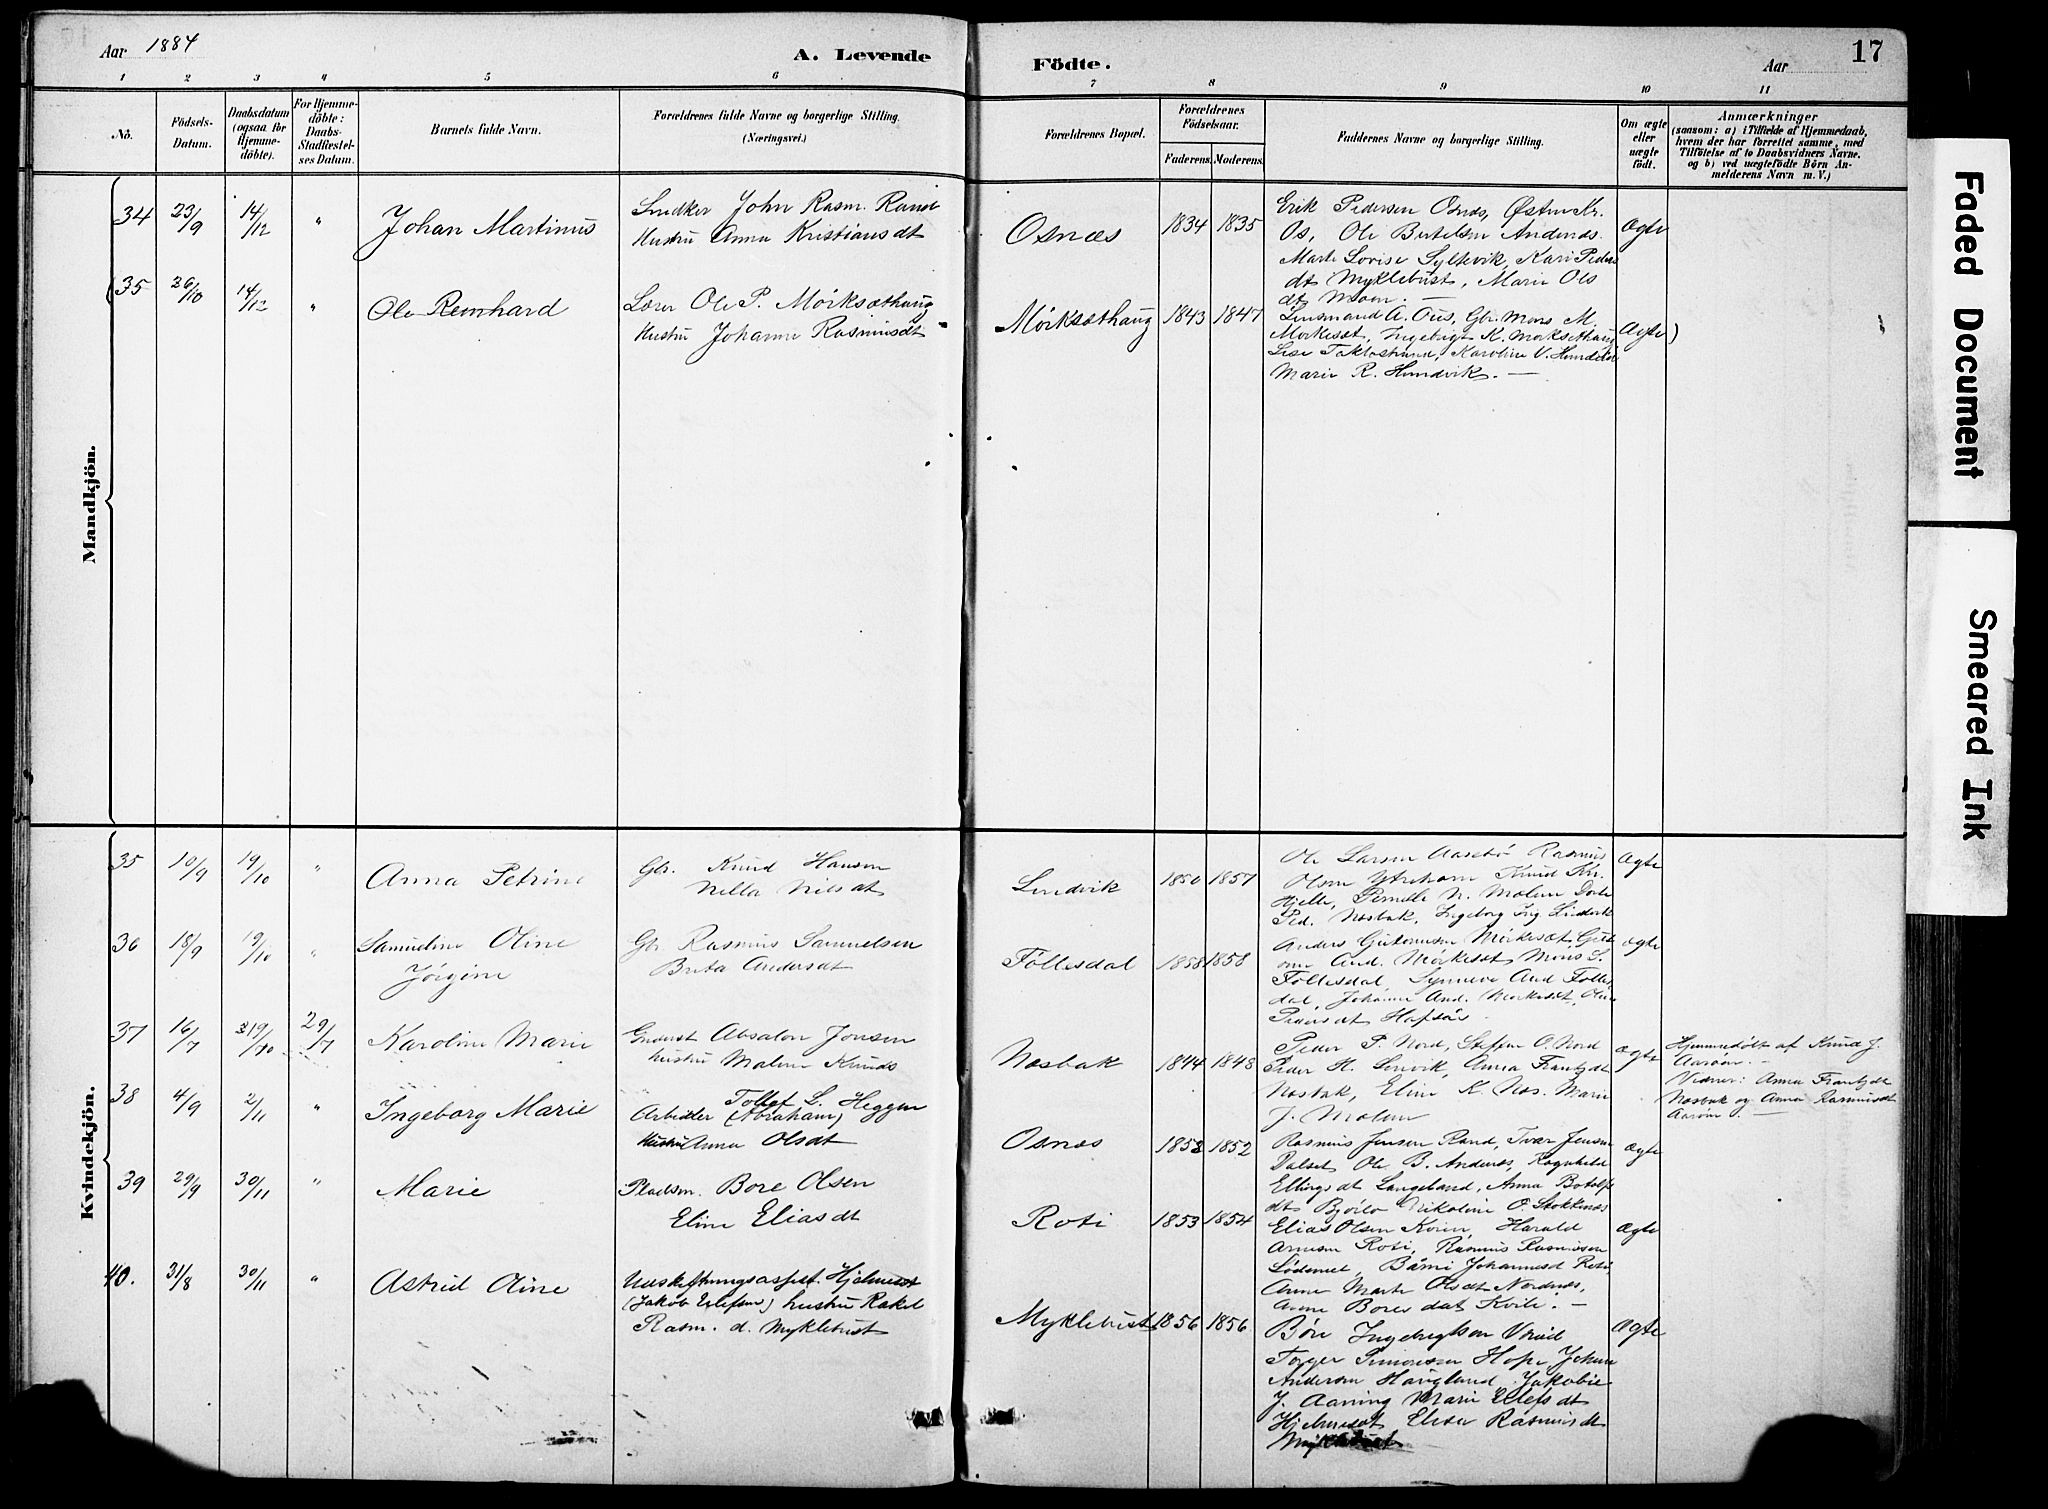 Aar 1884
A. Levende
Födte.
Aar
17
1 2 3 4 5 6 7 8 9 10 11
No.
Födsels-
Datum.
Daabsdatum
(ogsaa for
Hjemme-
döbte).
For Hjemme-
döbte:
Daabs-
Stadfæstel-
ses Datum.
Barnets fulde Navn.
Forældrenes fulde Navne og borgerlige Stilling.
(Næringsvei.)
Forældrenes Bopæl.
Forældrenes
Födselsaar.
Faderens. Moderens.
Faddernes Navne og borgerlige Stilling.
Om ægte
eller
uægte
født.
Anmærkninger
(saasom: a) i Tilfælde af Hjemmedaab,
hvem der har forrettet samme, med
Tilföielse af to Daabsvidners Navne,
og b) ved uægtefödte Börn An-
melderens Navn m. V.)
Mandkjön.
34 23/9 14/12 " Johan Martinus
Snedker John Rasm. Rand
Hustru Anna Kristiansdt
Osnæs 1834 1835
Erik Pedersen Osnæs, Østen Kr.
Os, Ole Bertelsen Andenæs.
Marte Lovise Syltevik, Kari Peders
dt Myklebust, Marie Ols
dt Moen. —
Ægte
35 26/10 14/12 " Ole Reinhard
Lærer Ole P. Mörksæthaug
Hustru Johanne Rasmusdt
Mörksæthaug 1843 1847
Lensmand A. Ous, Gbr. Mons M.
Morkeset, Ingebrigt K. Morksethaug
Lise Taklostrand, Karoline V. Hundeid
Marie R. Hundvik. —
Ægte)
Kvindekjön.
35 10/9 19/10 " Anna Petrine
Gbr. Knud Hansen
Nilla Nilsdt
Lendvik 1850 1857
Ole Larsen Aasebö Rasmus
Olsen Ytrehorn Knud Kr.
Hjelle, Pernille N. Malen Dorte
Ped. Næsbak, Ingeborg Ing. Lindevik
Ægte
36 18/9 19/10 " Samueline Oline
Jörgine
Gbr Rasmus Samuelsen
Brita Andersdt
Föllesdal 1858 1858
Anders Guttormsen Mörkesæt, Gutt
orm And. Mörkesæt Mons S.
Föllesdal, Synneve And Fölles
dal, Johanne And. Morkesæt, Oline
Pedersdt Hopsör.
ægte
37 16/7 19/10 29/7 Karoline Marie
Inderst Absalon Jonsen
hustru Malene Knuds
Næsbak 1844 1848
Peder P. Nord, Steffen O. Nord
Peder H. Lenvik, Anna Frantzdt
Næsbak, Eline K. Næs. Marie
J. Malen
Ægte
Hjemmedöbt af Knud J.
Aaröen. —
Vidner: Anna Frantzdt
Næsbak og Anna Rasmusdt
Aaröen. —
38 4/9 2/11 " Ingeborg Marie
Tollef S. Heggen
Arbeider (Abraham)
Hustru Anna Olsdt
Osnæs 1852 1852
Rasmus Jensen Rand, Ivar Jensen
Dalset Ole B. Andenæs, Ragnhild
Ellingsdt Langeland, Anna Botolfs
dt Björlo Nikoline O. Stokkenæs
Ægte
39 29/9 30/11 " Marie
Pladsm. Bore Olsen
Eline Eliasdt
Roti 1853 1854
Elias Olsen Kvien, Harald
Arnesen Roti, Rasmus Rasmussen
Lödemel, Johannesdt Roti
Anne Marte Olsdt Nordnæs,
Anne Boresdat Kvile. —
Ægte
40. 31/8 30/11 " Astrid Oline
Udskiftningsassist. Hjelmeset
(Jakob Ellefsen) hustru Rakel
Rasm. d. Myklebust
Myklebust 1856 1856
Böre Ingebrigtsen Vereid
Torger Simonsen Hope Johan
Andersen Haugland Jakobie
J. Aaning Marie Ellefsdt
Hjelmeset Elise Rasmusdt
Myklebust
Ægte
Faded Document
Smeared Ink